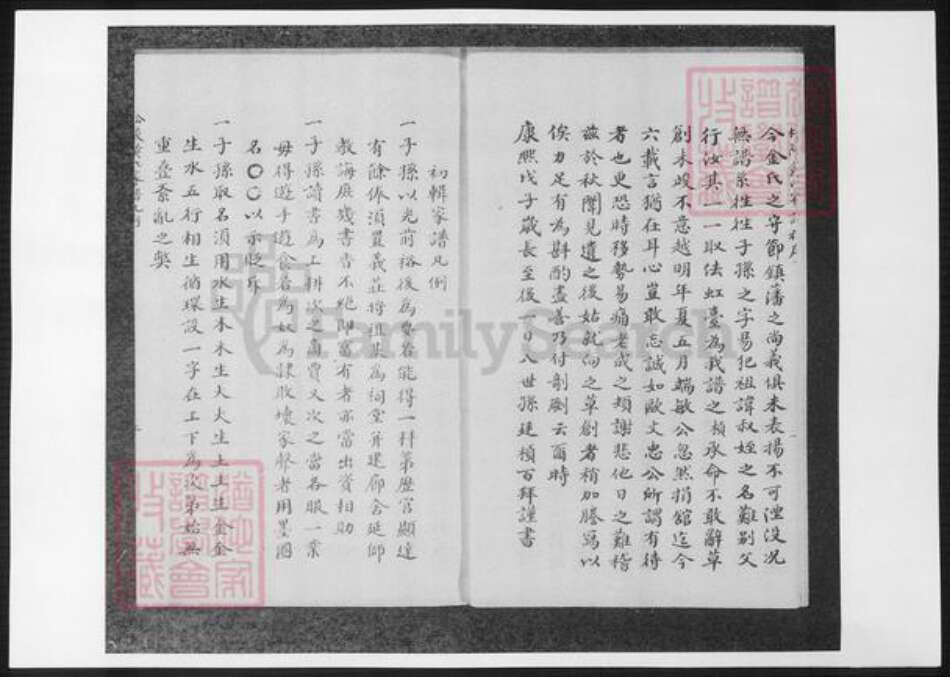 今金氏之守節鎮藩之尚義俱未表揚不可湮没况
無譜系往往子孫之字易犯祖諱叔姪之名難别父
行汝其一一取法虹臺為我譜之楨承命不敢辭草
創未竣不意越明年夏五月端敏公忽然捐舘迄今
六載言猶在耳心豈敢忘誠如歐文忠公所謂有待
者也更恐時移勢易痛老成之頻謝悲他日之難稽
兹於秋闈見遺之後姑就向之草創者稍加謄寫以
俟力足有為斟酌盡善乃付剞劂云爾時
康熙戊子歲長至後一日八世孫廷楨百拜謹書
初輯家譜凡例
一子孫以光前裕後為要若能得一科第歷官顯達
有餘俸須置義莊將祖基為祠堂并建廊舍延師
教誨庶幾書香不絶即富有者亦當出資相助
一子孫讀書為上耕次之商賈又次之當各服一業
毋得遊手遊食若為奴為隸敗壞家聲者用墨圈
名〇〇〇以示貶斥
一子孫取名須用水生木木生火火生土土生金金
生水五行相生循環設一字在上下為次第始無
重疊紊亂之獘
FamilySearch
譜學會
收藏